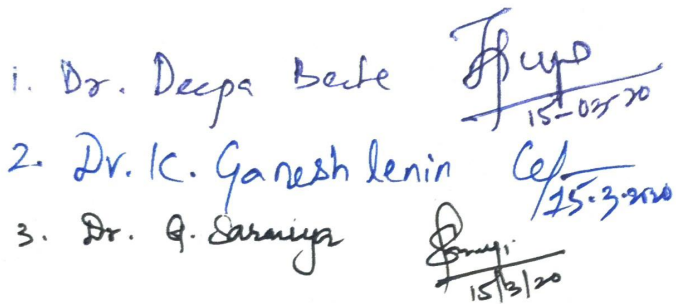 1. Dr. Deepa Beete 15-03-20
2. Dr. K. Ganesh lenin 15.3.2020
3. Dr. G. Saraniya 15/3/20